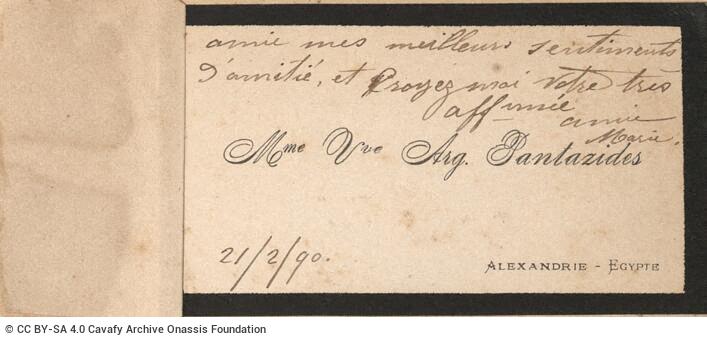 amie mes meilleurs sentiments
d'amitié, et Croyez moi Votre très
affmée
amie
Marie.
Mme Vve Arg. Pantazidès
21/2/90.
ALEXANDRIE - EGYPTE
© CC BY-SA 4.0 Cavafy Archive Onassis Foundation